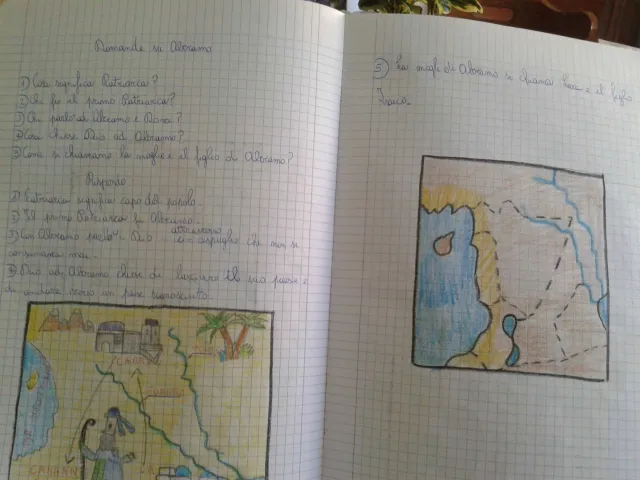 Domande su Abramo
1) Cosa significa Patriarca?
2) Chi fu il primo Patriarca?
3) Chi parlò ad Abramo e
4) Cosa chiese Dio ad Abramo?
5) Come si chiamano la moglie e il figlio di Abramo?
Rispondo
1) Patriarca significa capo del popolo.
2) Il primo Patriarca fu Abramo.
3) Con Abramo parlò Dio attraverso
un cespuglio che non si
consumava mai.
4) Dio ad Abramo chiese di lasciare il suo paese e
di andare verso un paese sconosciuto.
CANAAN
5) La moglie di Abramo si chiama e il figlio
Isacco.